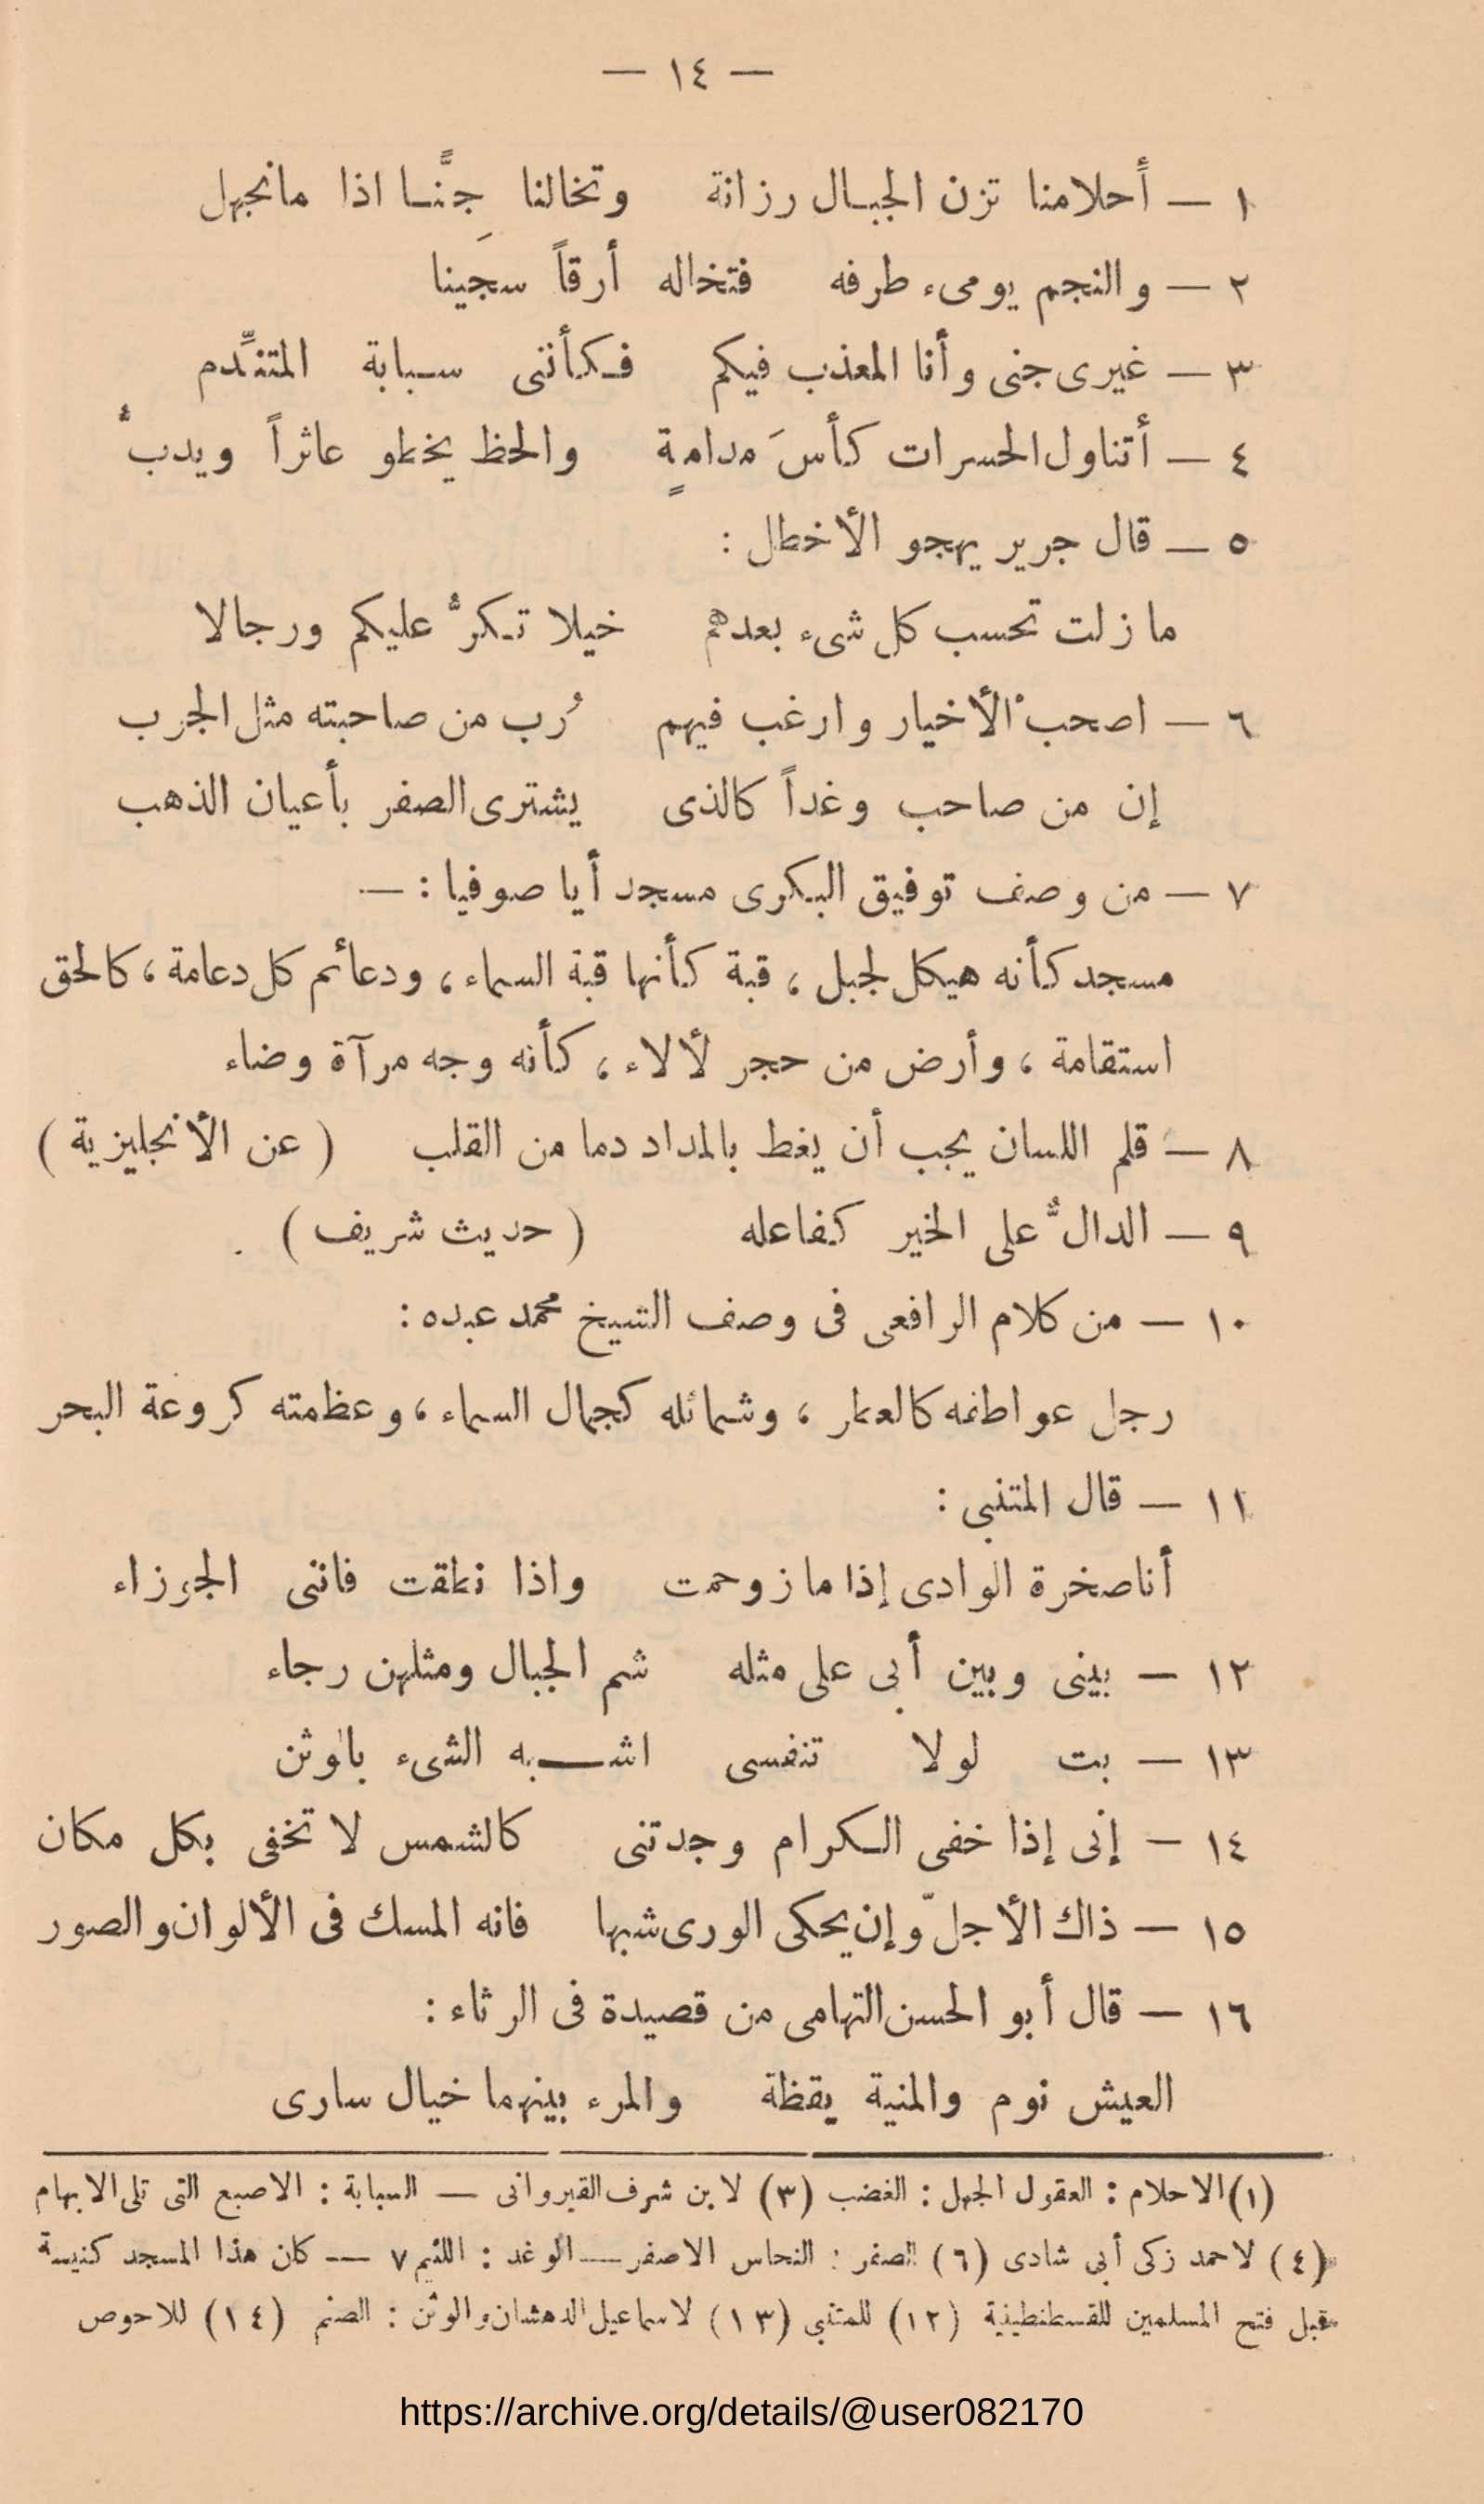 — ١٤ —
١ — أَحلامنا تزن الجبـال رزانة وتخالنا جِنًّـا اذا مانجهل
٢ — والنجم يومىء طرفه فتخاله أرقاً سجَينا
٣ — غيرى جنى وأنا المعذب فيكم فـكأننى سـبابة المتندِّم
٤ — أتناول الحسرات كأسَ مدامةٍ والحظ يخطو عاثراً ويدبُّ
٥ — قال جرير يهجو الأخطل :
ما زلت تحسب كل شىء بعدهم خيلا تـكرُّ عليكم ورجالا
٦ — اصحبْ الأخيار وارغب فيهم رُب من صاحبته مثل الجرب
إن من صاحب وغداً كالذى يشترى الصفر بأعيان الذهب
٧ — من وصف توفيق البكرى مسجد أيا صوفيا : —
مسجد كأنه هيكل لجبل ، قبة كأنها قبة السماء ، ودعائم كل دعامة ، كالحق
استقامة ، وأرض من حجر لألاء ، كأنه وجه مرآة وضاء
٨ — قلم اللسان يجب أن يغط بالمداد دما من القلب ( عن الأنجليزية )
٩ — الدالُّ على الخير كفاعله ( حديث شريف ) .
١٠ — من كلام الرافعى فى وصف الشيخ محمد عبده :
رجل عواطفه كالعطر ، وشمائله كجمال السماء ، وعظمته كروعة البحر
١١ — قال المتنبى :
أنا صخرة الوادى إذا ما زوحمت واذا نطقت فاننى الجوزاء
١٢ — بينى وبين أبى على مثله شم الجبال ومثلهن رجاء
١٣ — بت لولا تنفسى اشـــبه الشىء بالوثن
١٤ — إنى إذا خفى الـكرام وجدتنى كالشمس لا تخفى بكل مكان
١٥ — ذاك الأجلّ وإن يحكى الورى شبها فانه المسك فى الألوان والصور
١٦ — قال أبو الحسن التهامى من قصيدة فى الرثاء :
العيش نوم والمنية يقظة والمرء بينهما خيال سارى
(١) الاحلام : العقول الجهل : الغضب (٣) لابن شرف القيروانى — السبابة : الاصبع التى تلى الابهام
(٤) لاحمد زكى أبى شادى (٦) الصفر : النحاس الاصفر — الوغد : اللئيم ٧ — كان هذا المسجد كنيسة
قبل فتح المسلمين للقسطنطينية (١٢) للمتنبى (١٣) لاسماعيل الدهشان والوثن : الصنم (١٤) للاحوص
https://archive.org/details/@user082170